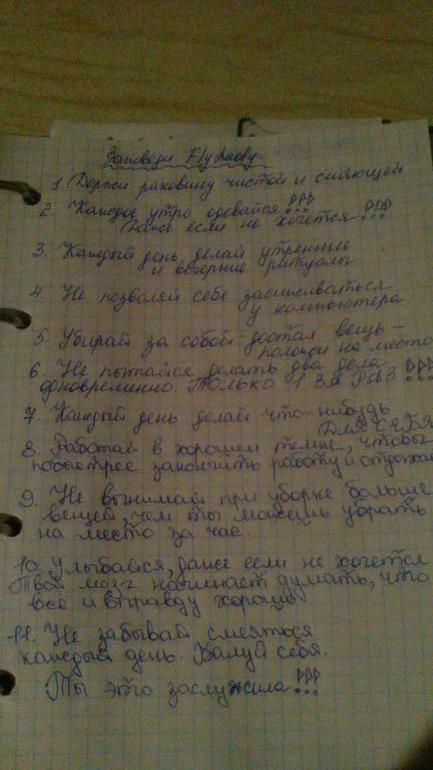 Заповеди FlyLady
1 Держи раковину чистой и сияющей
2. Каждое утро одевайся!!!
Даже если не хочется!!!
3. Каждый день делай утренние
и вечерние ритуалы
4. Не позволяй себе засиживаться
у компьютера.
5. Убирай за собой: достал вещь –
положи на место
6. Не пытайся делать два дела
одновременно. ТОЛЬКО 1 ЗА РАЗ!!!
7. Каждый день делай что-нибудь
ДЛЯ СЕБЯ
8. Работай в хорошем темпе, чтобы
побыстрее закончить работу и отдохнуть
9. Не вынимай при уборке больше
вещей, чем ты можешь убрать
на место за час.
10. Улыбайся, даже если не хочется
Твой мозг начинает думать, что
всё и вправду хорошо
11. Не забывай смеяться
каждый день. Балуй себя.
Ты это заслужила!!!